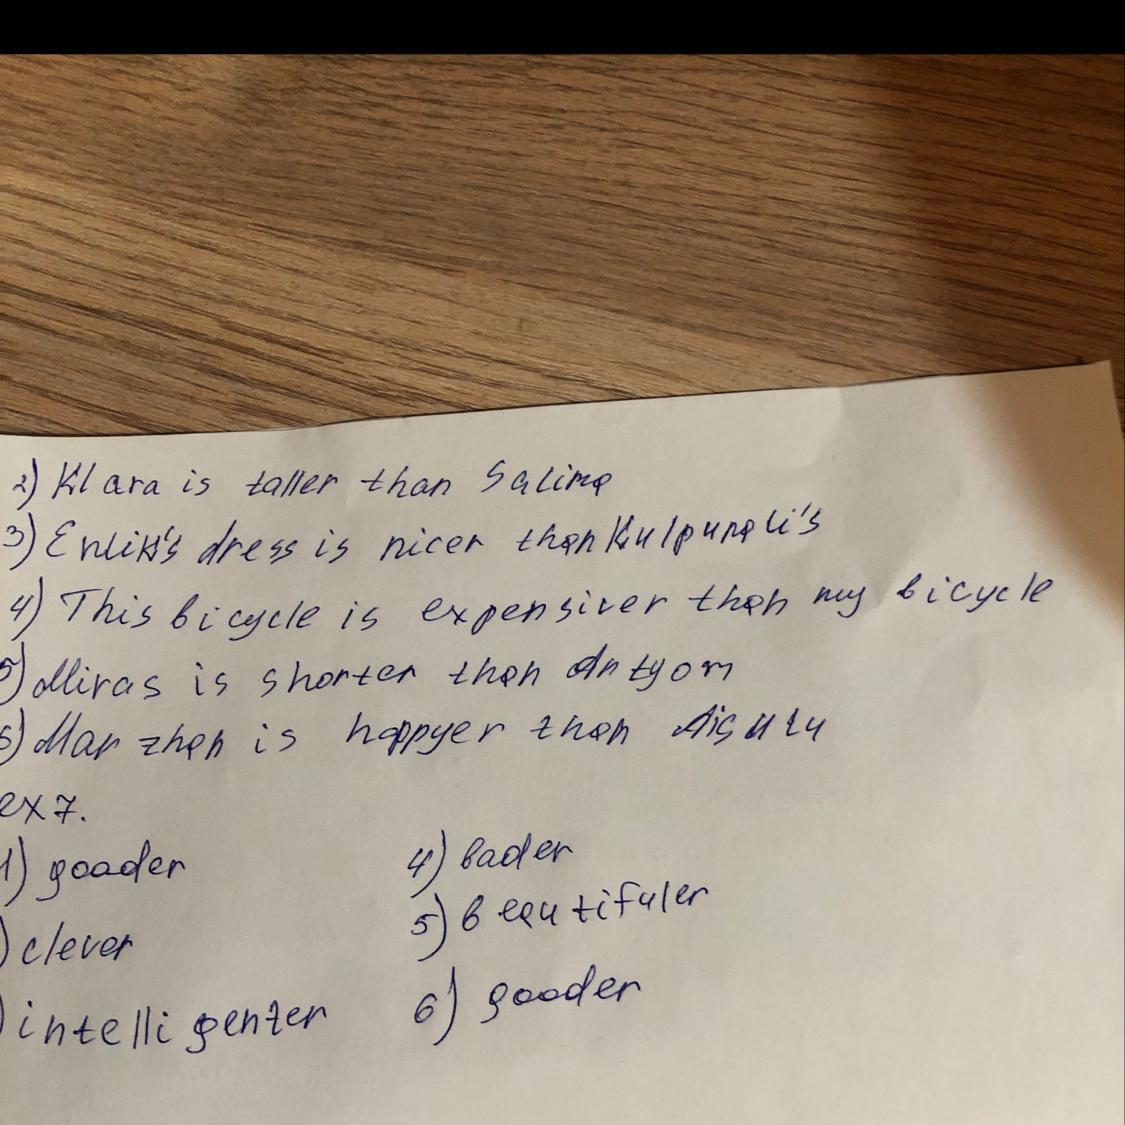 2) Klara is taller than Salima
3) Enlik's dress is nicer than Kulpunali's
4) This bicycle is expensiver than my bicycle
5) Miras is shorter than Antyom
6) Marzhan is happyer than Aisulu
ex7.
1) gooder
4) bader
) clever
5) beautifuler
) intelligenter
6) gooder